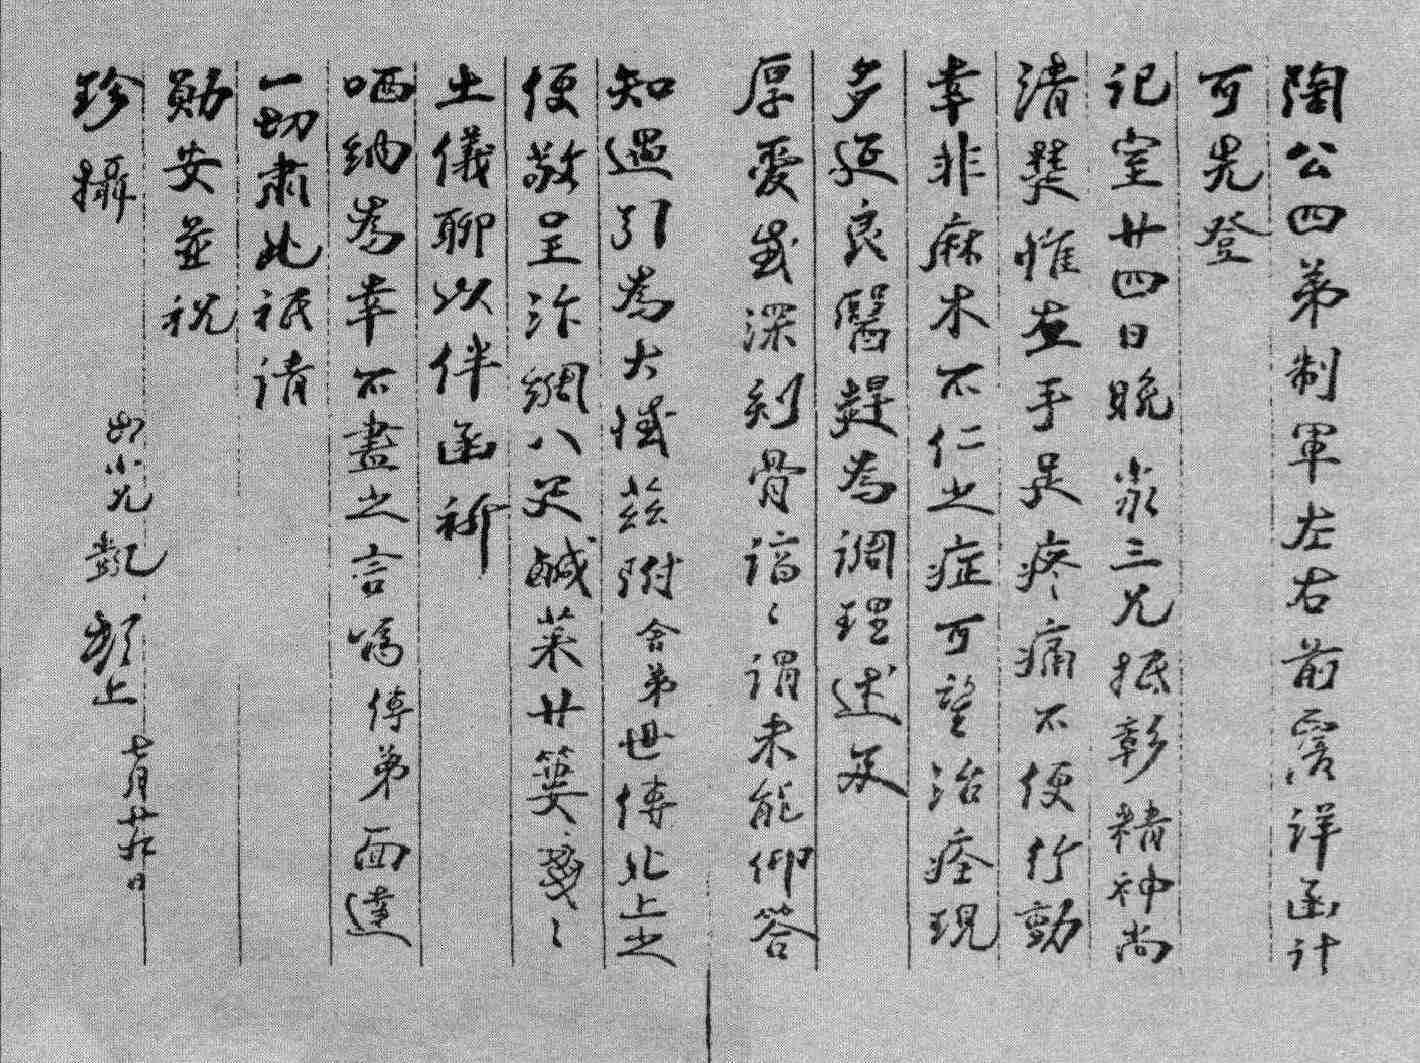 陶公四弟制軍左右前覆詳函計
可先登
記室廿四日晚永三兄抵彰精神尚
清楚惟左手足疼痛不便行動
幸非麻木不仁之症可望治痊現
多延良醫趕為調理述及
厚愛感深刻骨謂未能仰答
知遇引為大憾茲附舍弟世傳北上之
便敬呈汴綢八疋鹹菜廿簍戔〻
土儀聊以伴函祈
哂納為幸不盡之言囑傳弟面達
一切肅此祗請
勛安並祝
珍攝
如小兄凱頓上
七月廿九日